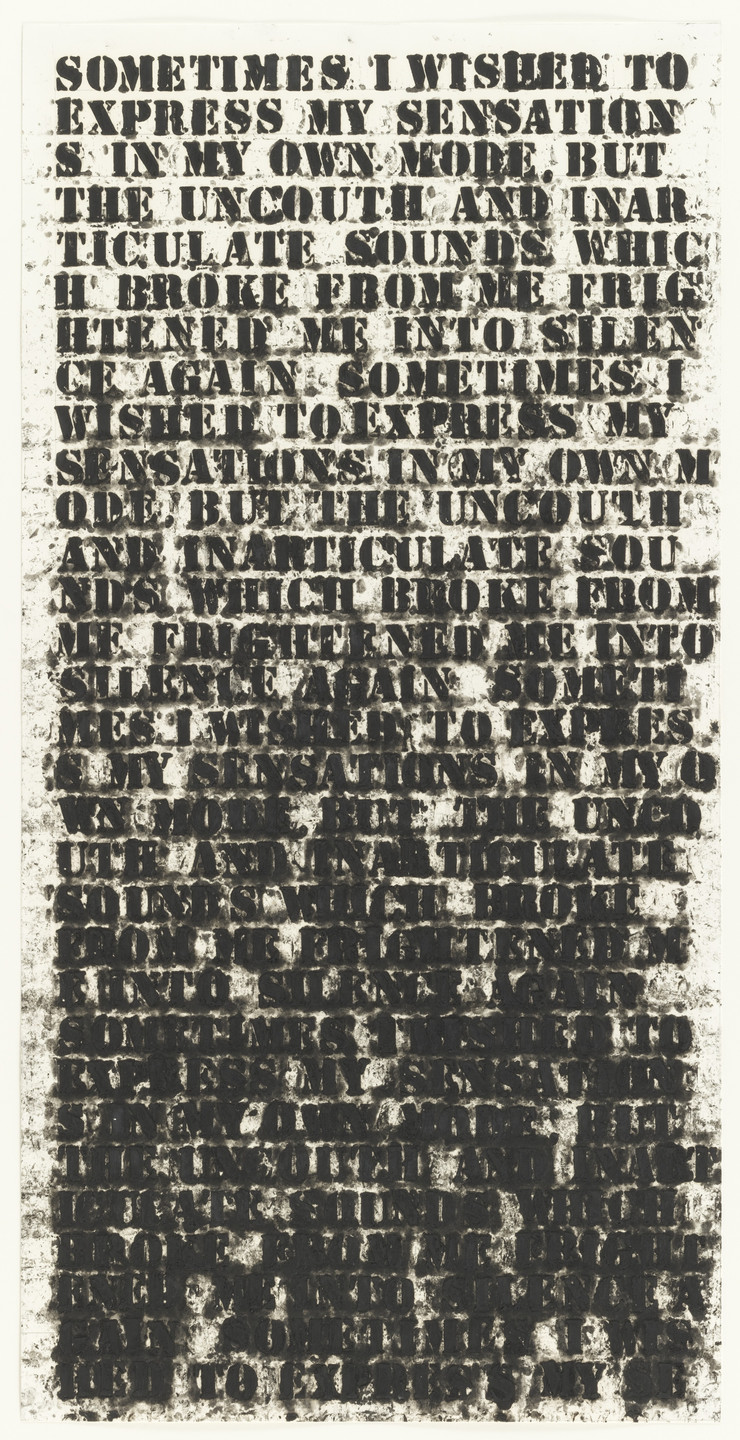 SOMETIMES I WISHED TO
EXPRESS MY SENSATION
S IN MY OWN MODE, BUT
THE UNCOUTH AND INAR
TICULATE SOUNDS WHIC
H BROKE FROM ME FRIG
HTENED ME INTO SILEN
CE AGAIN SOMETIMES I
WISHED TO EXPRESS MY
SENSATIONS IN MY OWN M
ODE, BUT THE UNCOUTH
AND INARTICULATE SOU
NDS WHICH BROKE FROM
ME FRIGHTENED ME INTO
SILENCE AGAIN SOMETI
MES I WISHED TO EXPRES
S MY SENSATIONS IN MY O
WN MODE, BUT THE UNCO
UTH AND INARTICULATE
SOUNDS WHICH BROKE
FROM ME FRIGHTENED M
E INTO SILENCE AGAIN
SOMETIMES I WISHED TO
EXPRESS MY SENSATION
S IN MY OWN MODE, BUT
THE UNCOUTH AND INART
ICULATE SOUNDS WHICH
BROKE FROM ME FRIGHT
ENED ME INTO SILENCE A
GAIN SOMETIMES I WIS
HED TO EXPRESS MY SE